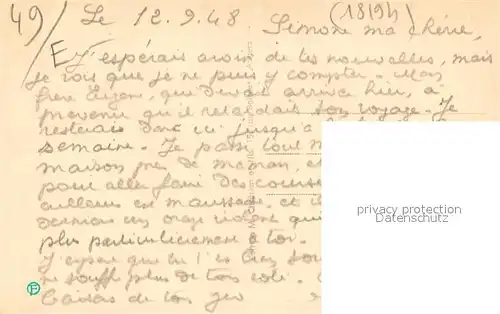 49/E
(1819h)
Le 12.9.48
Simone ma chérie,
J'espérais avoir de tes nouvelles, mais
je vois que je ne puis y compter. Mon
frère Eugène, qui devait arriver hier, a
prévenu qu'il retardait son voyage. Je
resterais donc ici jusqu'à
semaine. Je passe tout
maison près de maman, et
pour aller faire des courses
ailleurs est maussade, et il
dernier un orage violent qui
plus particulièrement à toi.
J'espère que tu
ne souffre plus de ton côté.
Baisers de ton
privacy protection
privacy protection